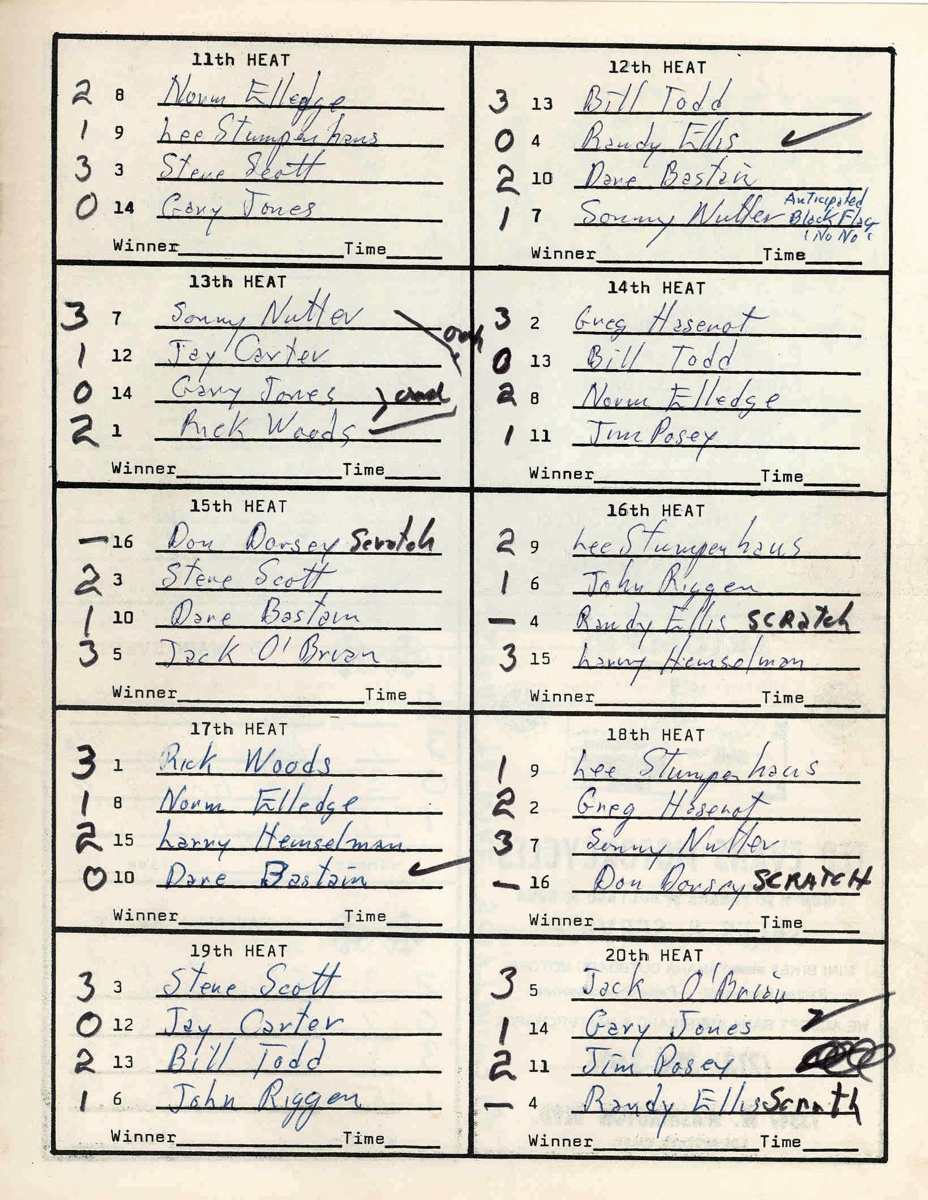 11th HEAT
2 8 Norm Elledge
1 9 Lee Stumpenhaus
3 3 Steve Scott
0 14 Gary Jones
Winner Time
12th HEAT
3 13 Bill Todd
0 4 Randy Ellis
2 10 Dave Bastain
1 7 Sonny Nutter Anticipated
Black Flag
No No
Winner Time
13th HEAT
3 7 Sonny Nutter
1 12 Jay Carter
0 14 Gary Jones
2 1 Rick Woods
Winner Time
14th HEAT
3 2 Greg Hasenot
0 13 Bill Todd
2 8 Norm Elledge
1 11 Jim Posey
Winner Time
15th HEAT
– 16 Don Dorsey Scratch
2 3 Steve Scott
1 10 Dave Bastam
3 5 Jack O'Brian
Winner Time
16th HEAT
2 9 Lee Stumpenhaus
1 6 John Riggen
– 4 Randy Ellis SCRATCH
3 15 Larry Hemselman
Winner Time
17th HEAT
3 1 Rick Woods
1 8 Norm Elledge
2 15 Larry Hemselman
0 10 Dave Bastam
Winner Time
18th HEAT
1 9 Lee Stumpenhaus
2 2 Greg Hasenot
3 7 Sonny Nutter
– 16 Don Dorsey SCRATCH
Winner Time
19th HEAT
3 3 Steve Scott
0 12 Jay Carter
2 13 Bill Todd
1 6 John Riggen
Winner Time
20th HEAT
3 5 Jack O'Brian
1 14 Gary Jones
2 11 Jim Posey
– 4 Randy Ellis Scratch
Winner Time